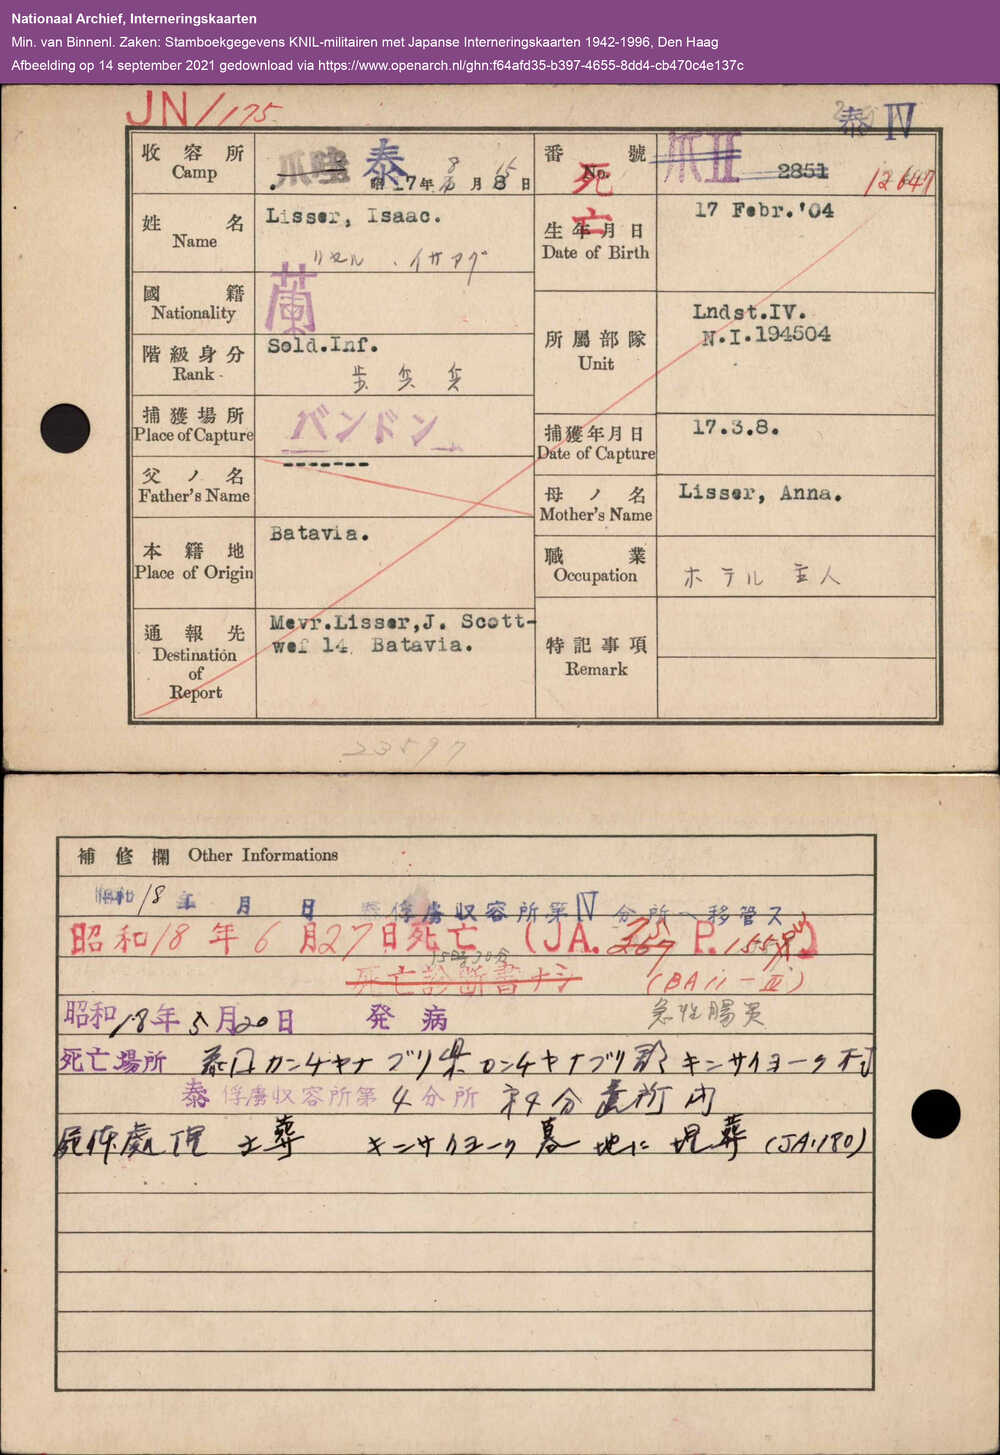 Nationaal Archief, Interneringskaarten
Min. van Binnenl. Zaken: Stamboekgegevens KNIL-militairen met Japanse Interneringskaarten 1942-1996, Den Haag
Afbeelding op 14 september 2021 gedownload via https://www.openarch.nl/ghn:f64afd35-b397-4655-8dd4-cb470c4e137c
JN/175
泰 IV
收容所 Camp
泰
昭 17年 8 月 15 日
番號 No.
爪II 2851
12647
死亡
姓名 Name
Lisser, Isaac.
リセル . イサアグ
生年月日 Date of Birth
17 Febr.'04
國籍 Nationality
蘭
階級身分 Rank
Sold.Inf.
歩兵
所屬部隊 Unit
Lndst.IV.
N.I.194504
捕獲場所 Place of Capture
バンドン
捕獲年月日 Date of Capture
17.3.8.
父ノ名 Father's Name
-------
母ノ名 Mother's Name
Lisser, Anna.
本籍地 Place of Origin
Batavia.
職業 Occupation
ホテル 主人
通報先 Destination of Report
Mevr.Lisser,J. Scott-
wef 14 Batavia.
特記事項 Remark
23597
補修欄 Other Informations
昭和18年 月 日 泰俘虜収容所第IV分所ヘ移管ス
昭和18年6月27日死亡 (JA. 267 P. 155)
15時30分
死亡診断書ナシ (BA ii-III)
昭和18年5月20日 発病 急性腸炎
死亡場所 泰国カンチヤナブリ県カンチヤナブリ郡キンサイヨーク村
泰俘虜収容所第4分所 第4分遣所内
屍体處理 土葬 キンサイヨーク墓地に埋葬 (JA.180)